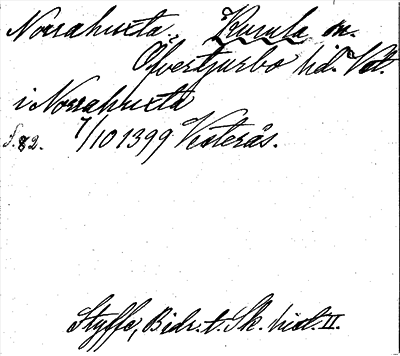 Norrahuxta. Kumla sn.
Öfvertjurbo hd. Vstl.
i Norrahuxta
s. 82. 7/10 1399 Vesterås.
Styffe, Bidr. t. Sk. hist. II.